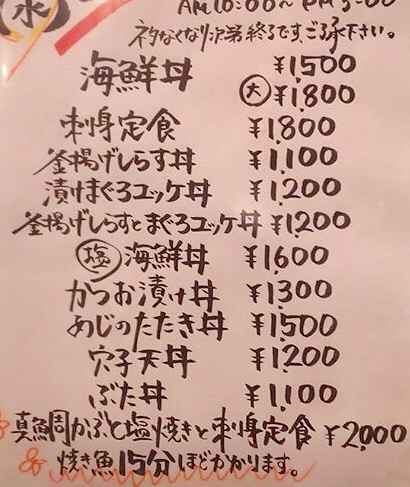 (水)
AM10:00〜PM3:00
ネタなくなり次第終了です、ご了承下さい。
海鮮丼 ¥1500
(大) ¥1,800
刺身定食 ¥1,800
釜揚げしらす丼 ¥1,100
漬けまぐろユッケ丼 ¥1,200
釜揚げしらすとまぐろユッケ丼 ¥1,200
(塩)海鮮丼 ¥1600
かつお漬け丼 ¥1300
あじのたたき丼 ¥1500
穴子天丼 ¥1200
ぶた丼 ¥1,100
真鯛かぶと塩焼きと刺身定食 ¥2,000
焼き魚15分ほどかかります。